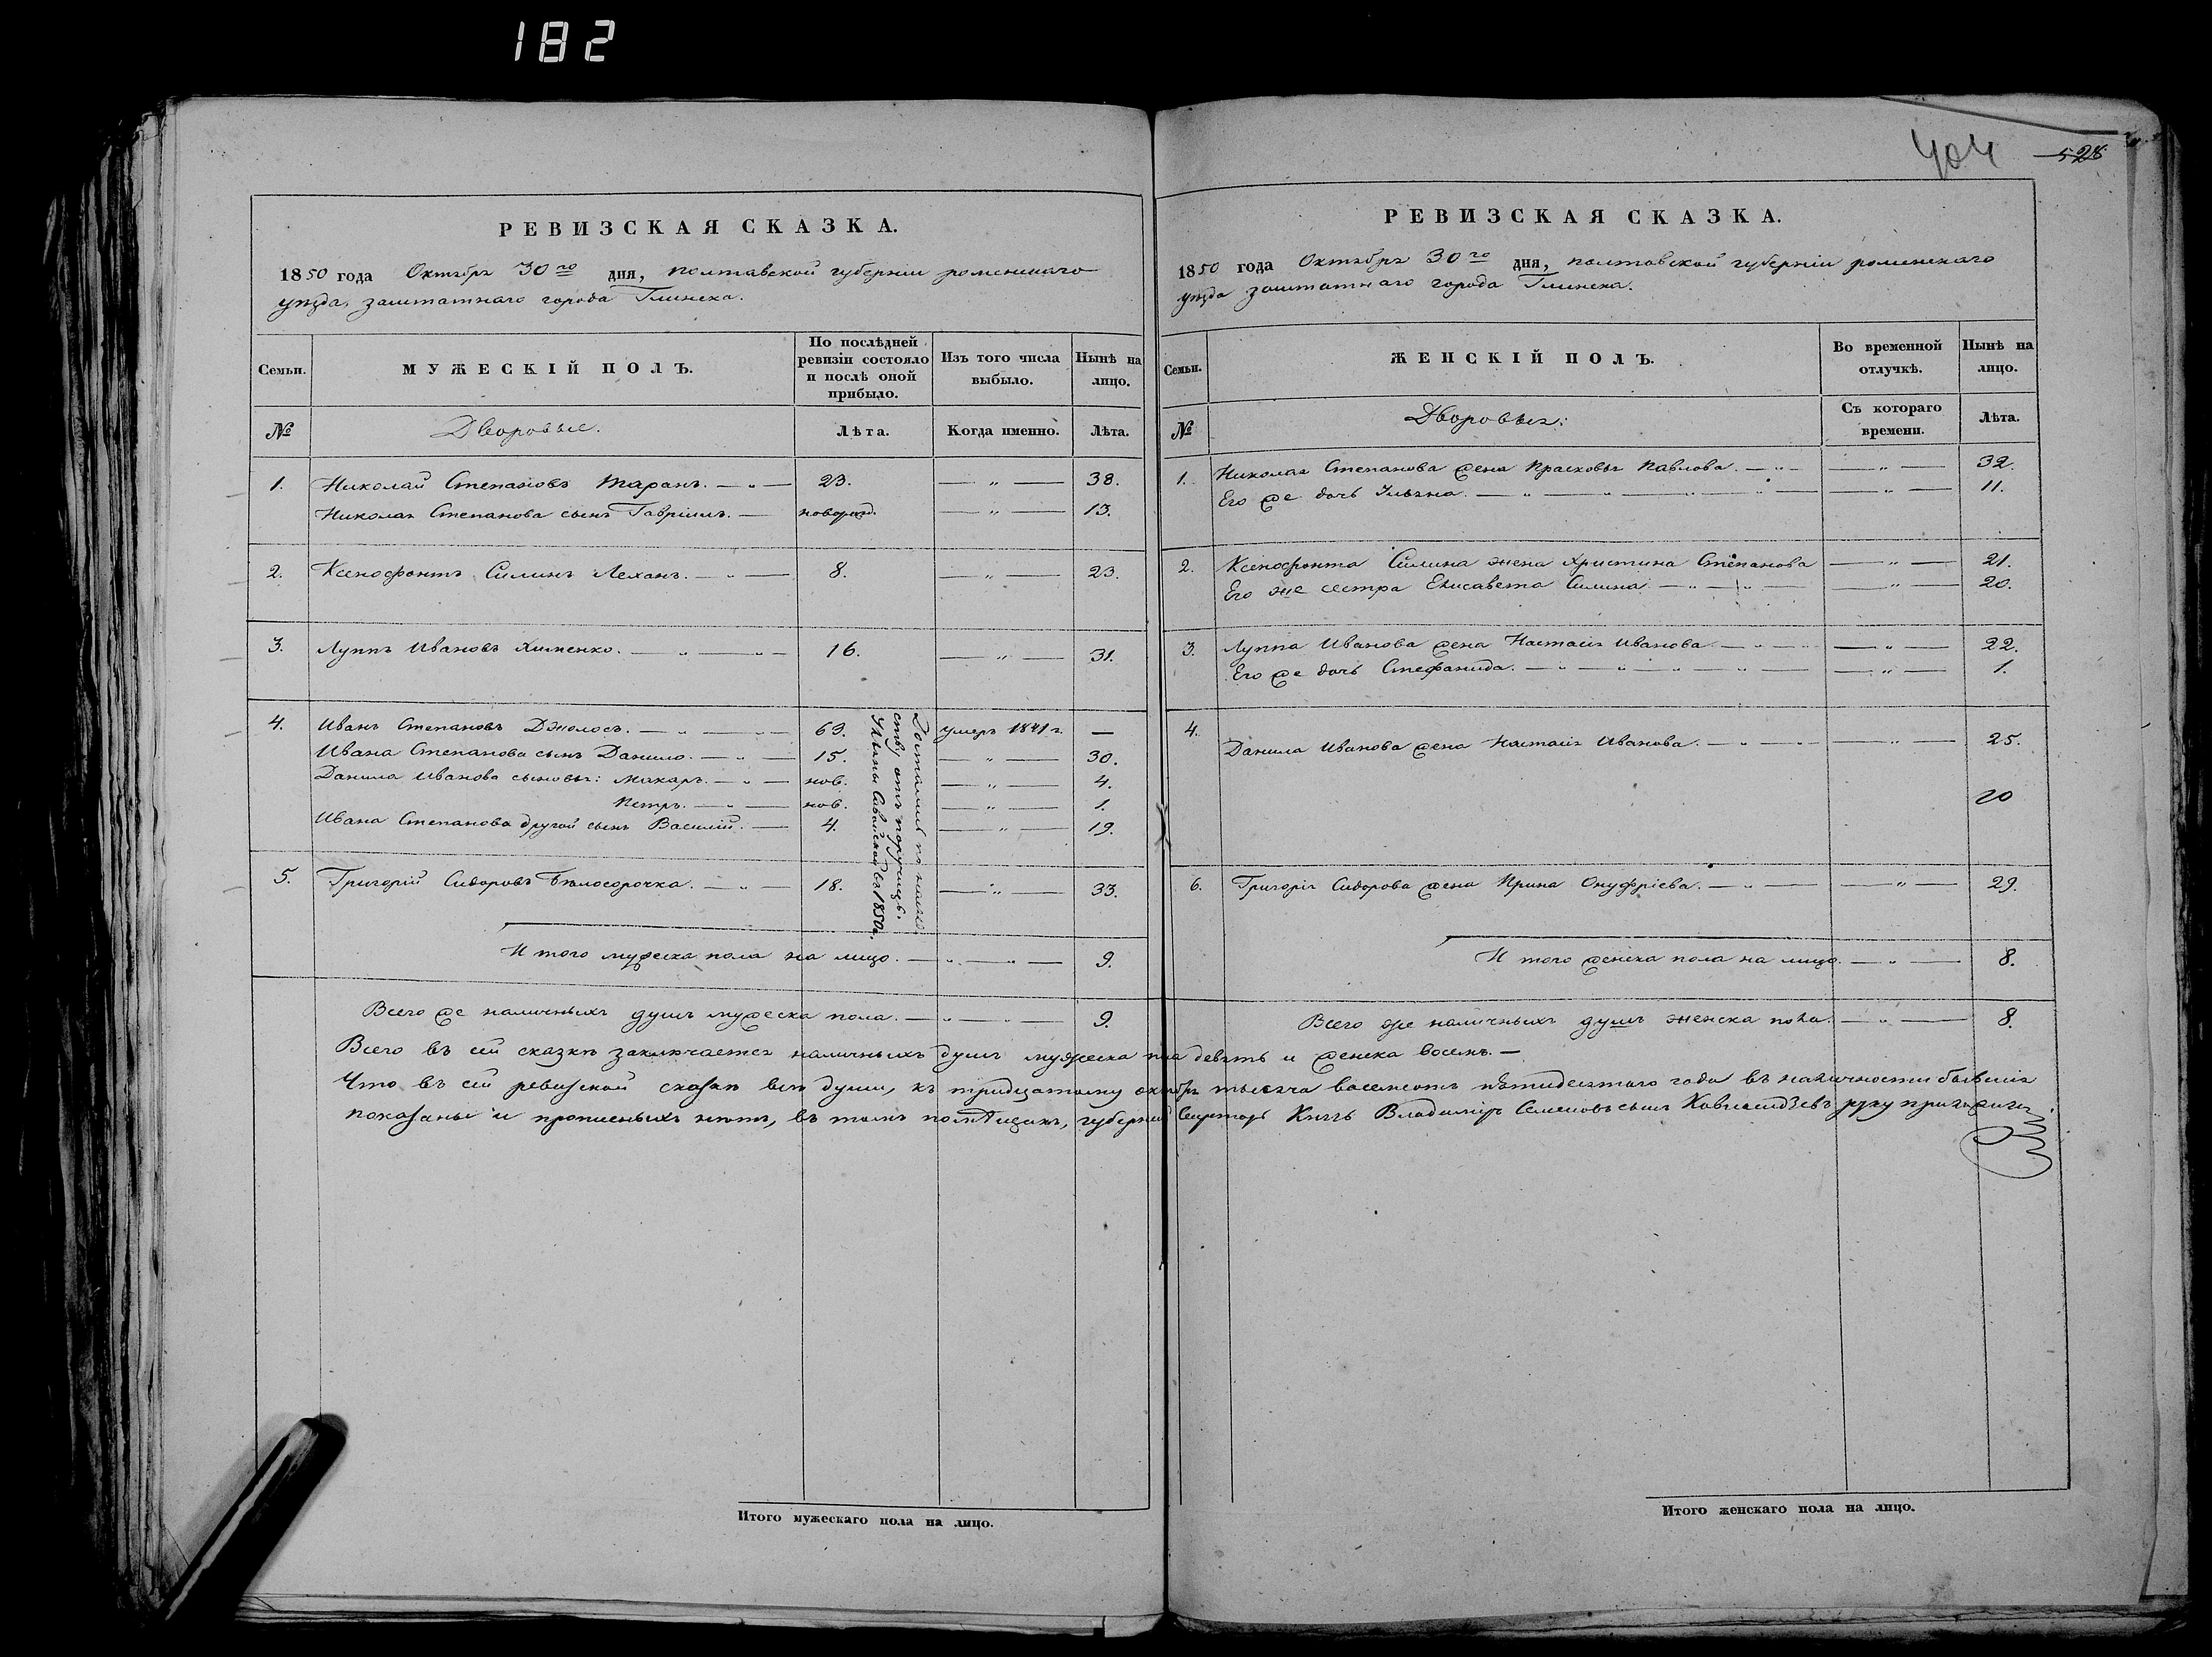 182
404
528
РЕВИЗСКАЯ СКАЗКА.
1850 года Октября 30го дня, полтавской губерніи роменскаго
уѣзда, заштатнаго города Глинска.
Семьи.
МУЖЕСКІЙ ПОЛЪ.
По послѣдней ревизіи состояло и послѣ оной прибыло.
Изъ того числа выбыло.
Нынѣ на лицо.
№ Дворовые. Лѣта. Когда именно. Лѣта.
1. Николай Степановъ Таранъ. — „ — 23. — „ — 38.
Николая Степанова сынъ Гавріилъ. — новорожд. — „ — 13.
2. Ксенофонтъ Силинъ Леханъ. — „ — 8. — „ — 23.
3. Луппъ Ивановъ Хименко. — „ — „ — 16. — „ — 31.
4. Иванъ Степановъ Джолосъ. — „ — „ — 63. умеръ 1841 г. —
Ивана Степанова сынъ Данило. — „ — 15. — „ — 30.
Данила Иванова сыновья: Макаръ. — „ — нов. — „ — 4.
Петръ. — „ — нов. — „ — 1.
Ивана Степанова другой сынъ Василій. — 4. — „ — 19.
5. Григорій Сидоровъ Бѣлосорочка. — „ — 18. — „ — 33.
Достались по наслѣд
ству отъ порутчицы
Ульяны въ 1850 г.
И того мужеска пола на лицо. — „ — „ — 9.
Всего же наличныхъ душъ мужеска пола. — „ — „ — 9.
РЕВИЗСКАЯ СКАЗКА.
1850 года Октября 30го дня, полтавской губерніи роменскаго
уѣзда заштатнаго города Глинска.
Семьи.
ЖЕНСКІЙ ПОЛЪ.
Во временной отлучкѣ.
Нынѣ на лицо.
№ Дворовыя: Съ котораго времени. Лѣта.
1. Николая Степанова жена Прасковья Павлова. — „ — — „ — 32.
Его же дочь Ульяна. — „ — „ — „ — „ — — „ — 11.
2. Ксенофонта Силина жена Христина Степанова — „ — 21.
Его же сестра Елисавета Силина — „ — „ — — „ — 20.
3. Луппа Иванова жена Настасія Иванова. — „ — „ — „ — 22.
Его же дочь Стефанида. — „ — „ — „ — „ — — „ — 1.
4. Данила Иванова жена Настасія Иванова. — „ — „ — — „ — 25.
20
6. Григорія Сидорова жена Ирина Онуфріева. — „ — — „ — 29.
И того женска пола на лицо. — „ — 8.
Всего же наличныхъ душъ женска пола. — „ — 8.
Всего въ сей сказкѣ заключается наличныхъ душъ мужеска пола девять и женска восемь. —
Что въ сей ревизской сказкѣ всѣ души, къ тридцатому октября тысяча восемсотъ пятидесятаго года въ наличности бывшія
показаны и прописныхъ нѣтъ, въ томъ помѣщикъ, губернскій Секретарь Князь Владиміръ Семеновъ сынъ руку приложилъ
Итого мужескаго пола на лицо.
Итого женскаго пола на лицо.